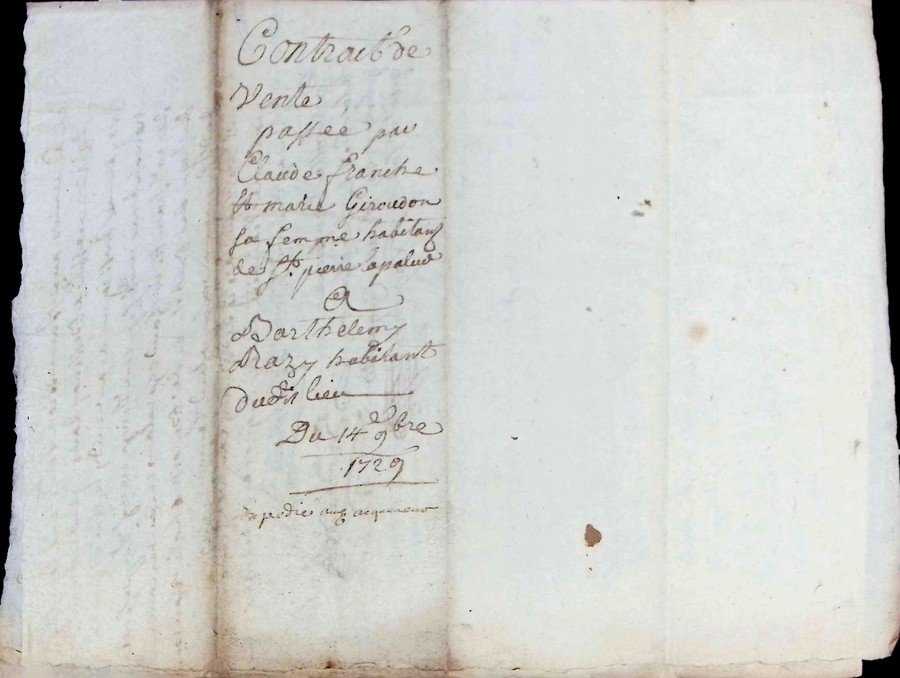 Contract de
Vente
passée par
Claude franche
et marie Giroudon
sa femme habitans
de St. pierre lapalud
A
Barthelemy
Razy habitant
dudit lieu
Du 14 9bre
1729
expedié aux acquereur